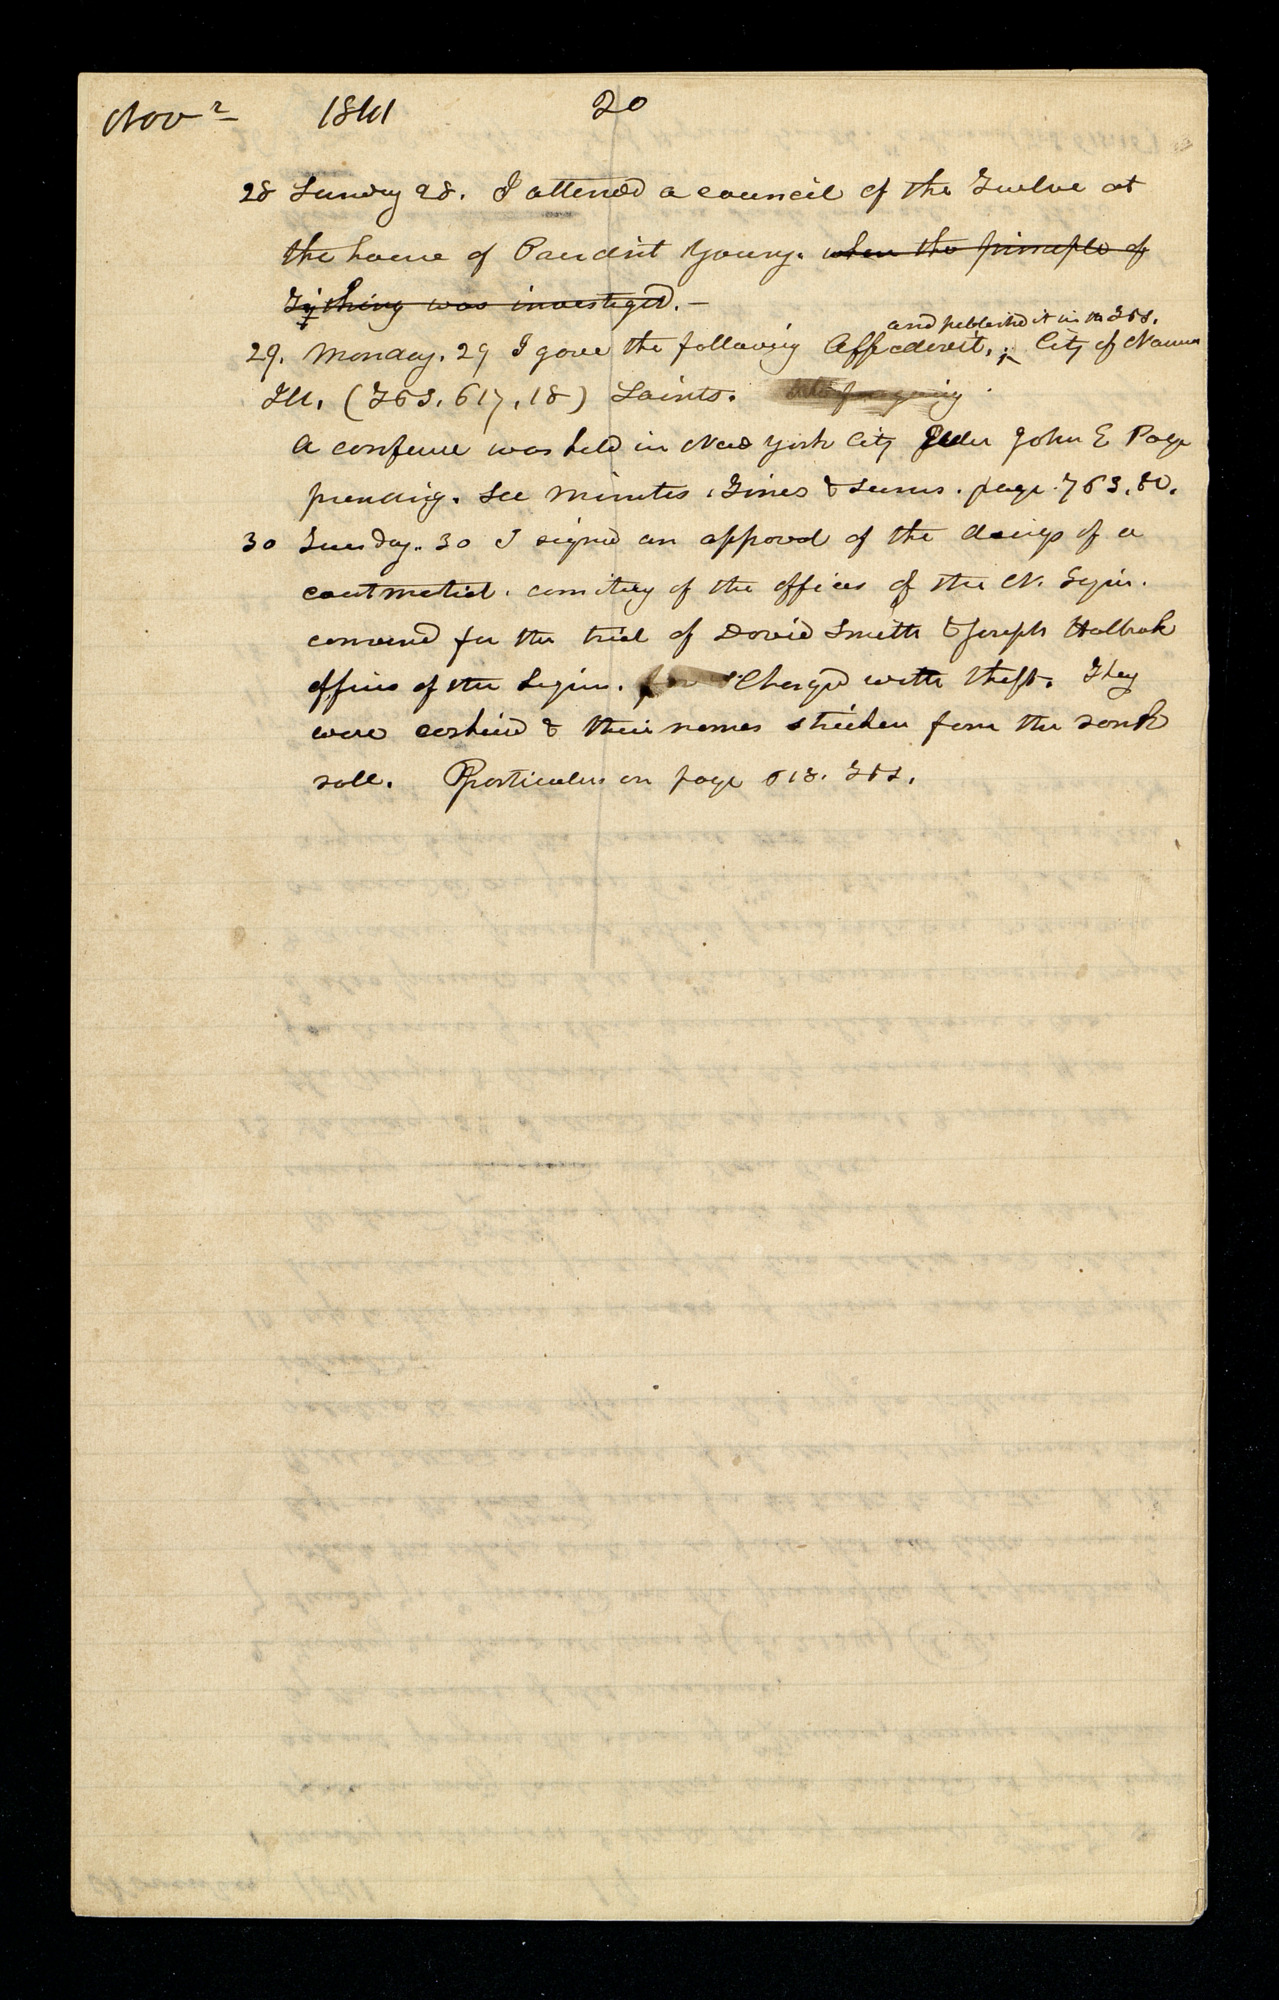 Novr 1841 20
28 Sunday 28. I attened a council of the Twelve at
the house of President Young. when the principle of
Tything was investiged. —
and published it in the T&S.
29. Monday. 29 I gave the following Affedevit. City of Nauvoo
Ill. (T&S. 617, 18) Saints.
A confence was held in New York City Elder John E Page
presiding. See Minutes, Times & Seasons. page
30 Tuesday. 30 I signed an approval of the doings of a
cout Matial. consisting of the offices of the N. Legion.
convened for the trial of David Smith & Joseph Holbrok
offices of the Legion. Charged with theft. They
were cashied & their names stricken from the rank
roll. Particulars on page 618. T&S.